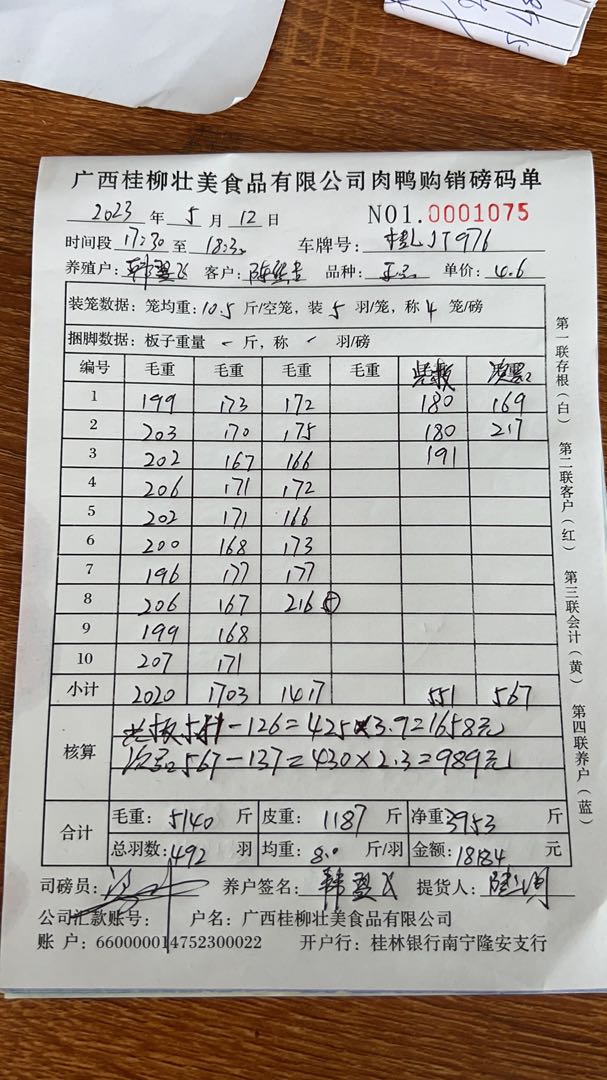 广西桂柳壮美食品有限公司肉鸭购销磅码单
2023 年 5 月 12 日 NO1.0001075
时间段 17:30 至 18:30 车牌号: 桂 JT976
养殖户: 韩 飞 客户: 品种: 单价: 4.6
装笼数据: 笼均重: 10.5 斤/空笼, 装 5 羽/笼, 称 4 笼/磅
捆脚数据: 板子重量 - 斤, 称 - 羽/磅
编号 毛重 毛重 毛重 毛重
1 199 173 172 180 169
2 203 170 175 180 217
3 202 167 166 191
4 206 171 172
5 202 171 166
6 200 168 173
7 196 177 177
8 206 167 216 ⑤
9 199 168
10 207 171
小计 2020 1703 1417 551 567
核算
551-126=425×3.9=1658元
567-137=430×2.3=989元
合计
毛重: 5140 斤 皮重: 1187 斤 净重: 3953 斤
总羽数: 492 羽 均重: 8.0 斤/羽 金额: 18184 元
司磅员: 养户签名: 韩 飞 提货人:
公司汇款账号: 户名: 广西桂柳壮美食品有限公司
账 户: 660000014752300022 开户行: 桂林银行南宁隆安支行
第一联存根(白) 第二联客户(红) 第三联会计(黄) 第四联养户(蓝)